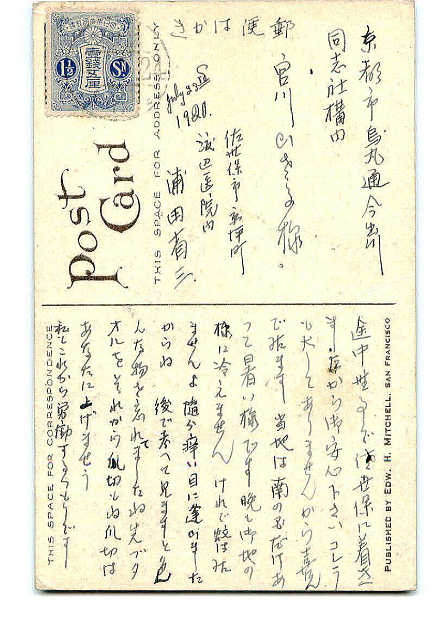 郵便はがき
壹錢五厘
1½ Sn
京都市烏丸通今出川
同志社構内
宮川ひさ子様。
佐世保市
渡辺医院内
浦田省三
July
1920.
Post Card
THIS SPACE FOR ADDRESS ONLY
THIS SPACE FOR CORRESPONDENCE
PUBLISHED BY EDW. H. MITCHELL, SAN FRANCISCO
途中無事で佐世保に着き
ましたから御安心下さい コレラ
も大してありませんから喜ん
で居ます 当地は南の国だけあ
って暑い様です 晩も御地の
様に冷えません けれど蚊はゐ
ませんよ 随分痒い目に逢ひました
からね 後で考へて見ますと色
んな物を忘れてましたね 先づタ
オルをそれから爪切もね 爪切は
あなたに上げませう
私もこれから労働するつもりです